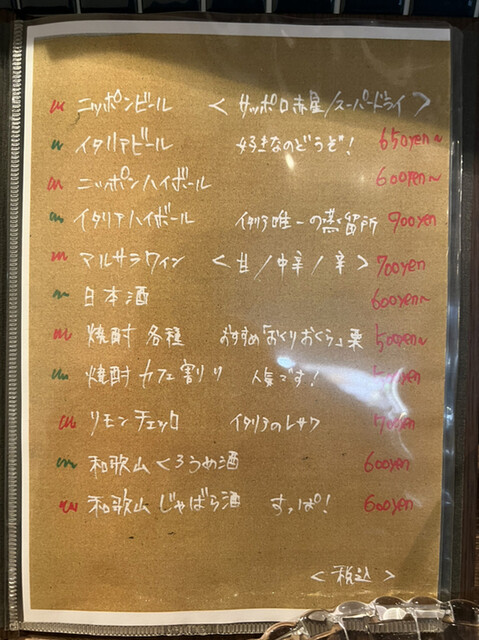 ニッポンビール <サッポロ赤星/スーパードライ>
イタリアビール 好きなのどうぞ! 650yen~
ニッポンハイボール 600yen~
イタリアハイボール イタリア唯一の蒸留所 900yen
マルサラワイン <甘/中辛/辛> 700yen
日本酒 600yen~
焼酎 各種 おすすめ「おくりおくら」栗 500yen~
焼酎カフェ割り 人気です!
リモンチェッロ イタリアのレサワ
和歌山くろうめ酒 600yen
和歌山じゃばら酒 すっぱ! 600yen
<税込>